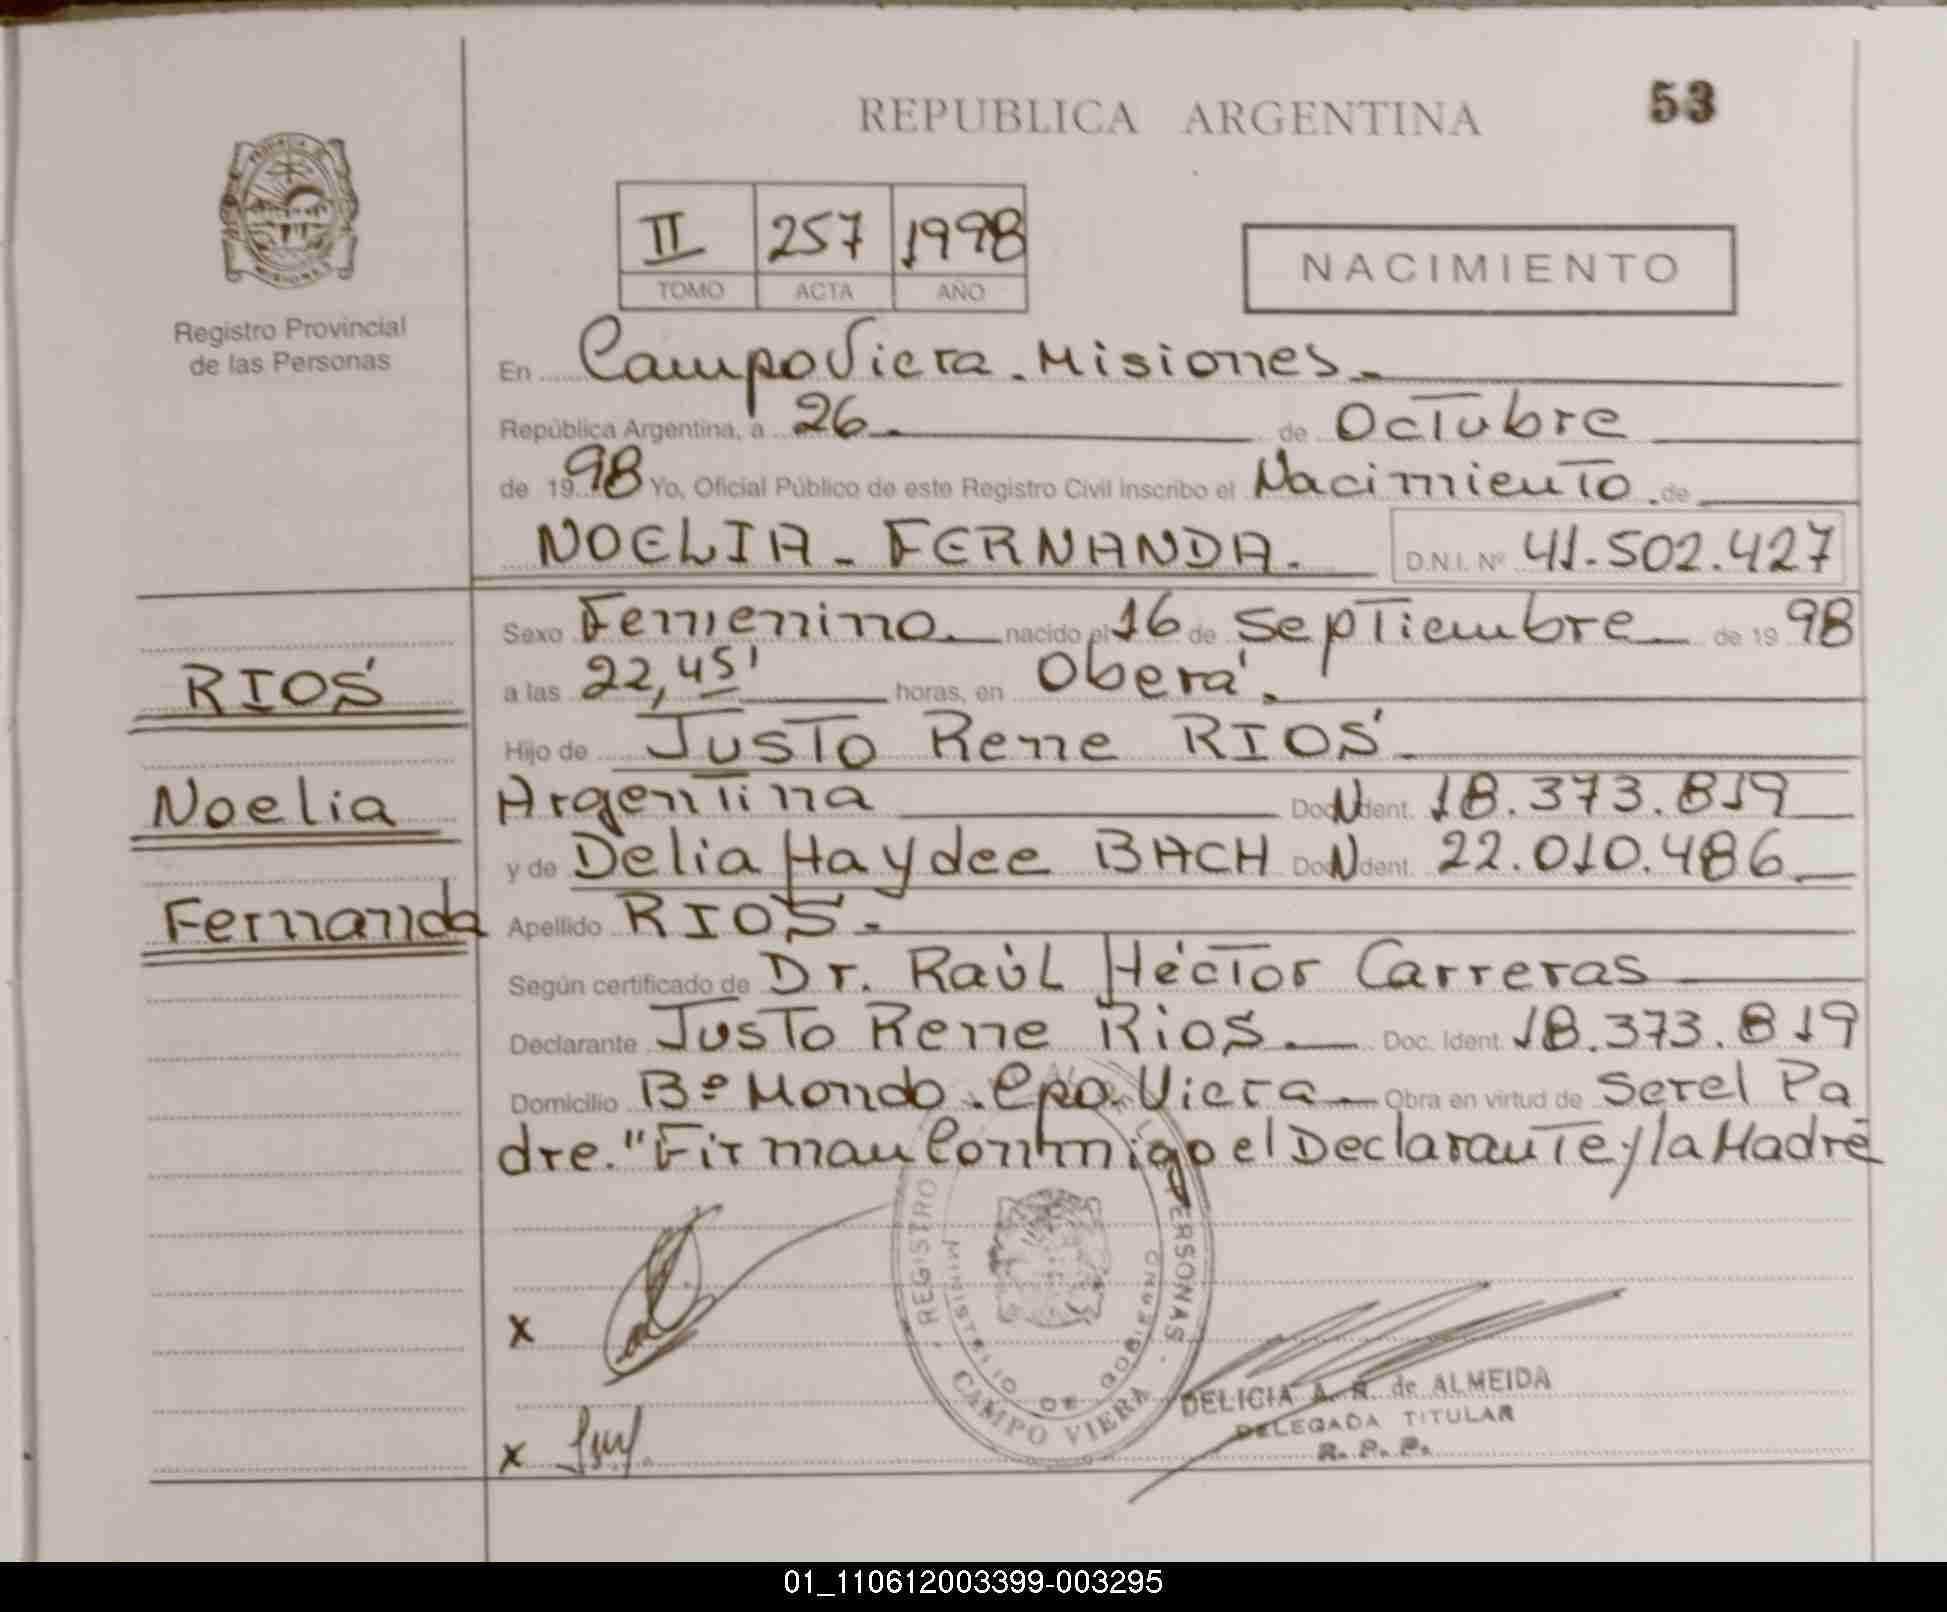 REPUBLICA ARGENTINA
53
II 257 1998
TOMO ACTA AÑO
NACIMIENTO
Registro Provincial
de las Personas
En Campo Viera - Misiones.
República Argentina, a 26 de Octubre
de 19 98 Yo, Oficial Público de este Registro Civil inscribo el Nacimiento de
NOELIA - FERNANDA. D.N.I. Nº 41.502.427
Sexo Femenino nacido el 16 de Septiembre de 19 98
a las 22,45' horas, en Oberá.
Hijo de Justo Rene RIOS
Argentina Doc. Ident. N 18.373.819
y de Delia Haydee BACH Doc. Ident. N 22.010.486
Apellido RIOS.
Según certificado de Dr. Raúl Héctor Carreras
Declarante Justo Rene Rios. Doc. Ident. 18.373.819
Domicilio Bº Mondo. Cpo. Viera Obra en virtud de Ser el Pa
dre. "Firman Conmigo el Declarante y la Madre
RIOS
Noelia
Fernanda
x
x
REGISTRO PERSONAS
MINISTERIO DE GOBIERNO
CAMPO VIERA
DELICIA A. R. de ALMEIDA
DELEGADA TITULAR
R. P. P.
01_110612003399-003295